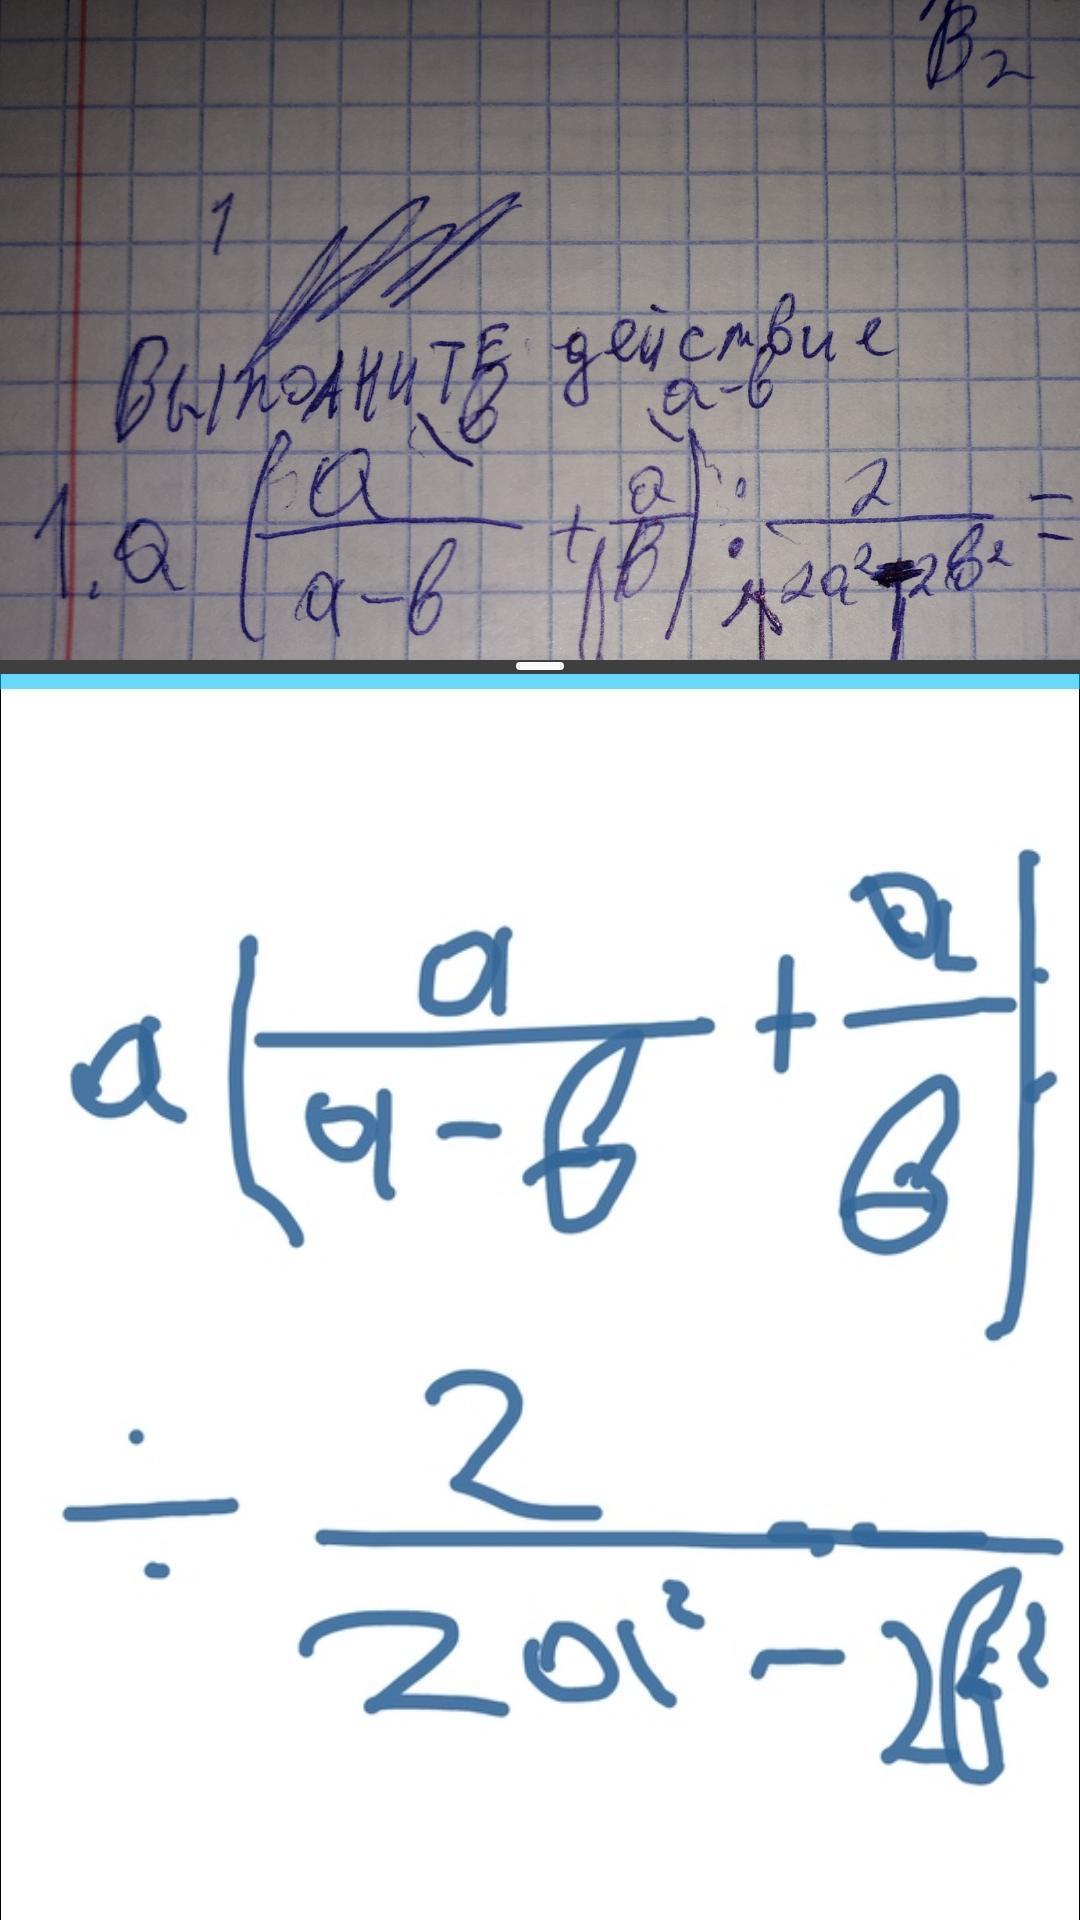 B2
1
Выполните действие
\b \a-b
1. a (a/(a-b) + a/b) : 2/(2a²-2b²) =
a (a/(a-b) + a/b) :
÷ 2/(2a²-2b²)